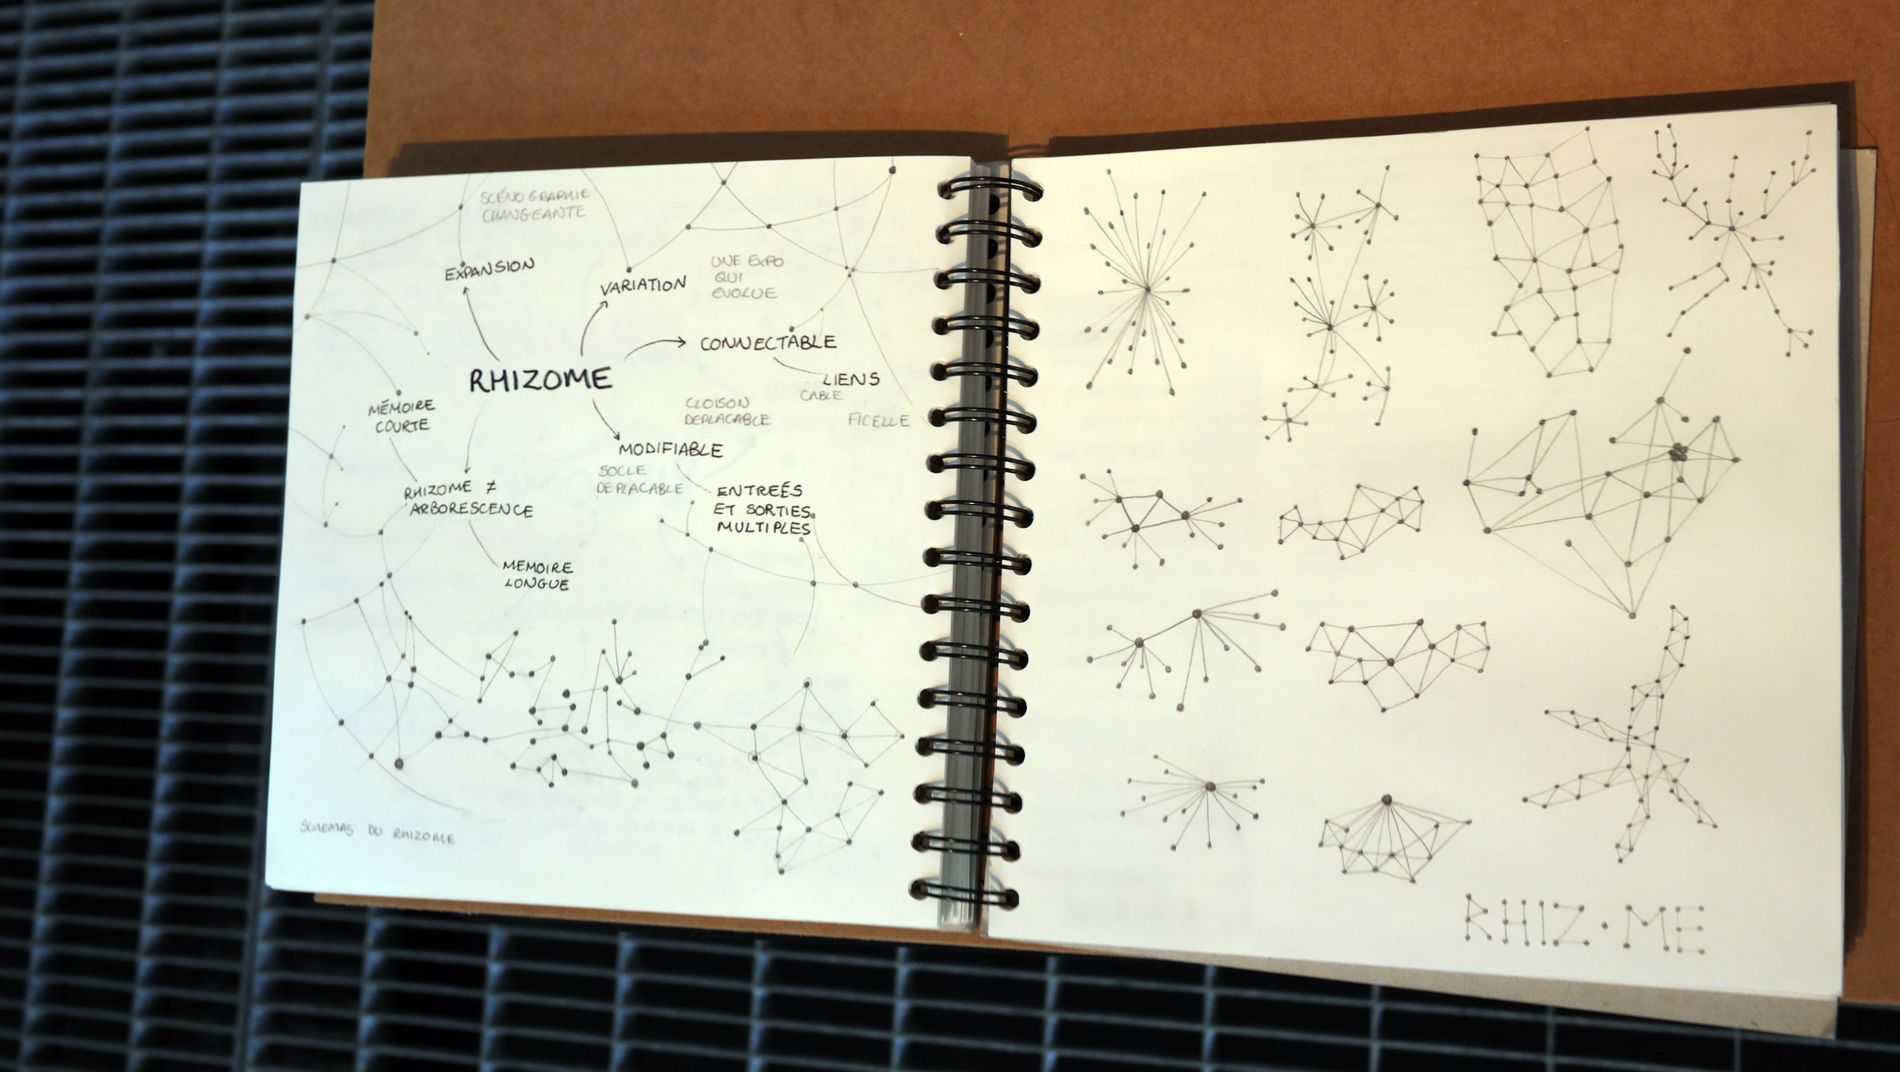 SCÉNOGRAPHIE
CHANGEANTE
EXPANSION
VARIATION
UNE EXPO
QUI
EVOLUE
CONNECTABLE
RHIZOME
LIENS
CABLE
FICELLE
CLOISON
DEPLACABLE
MÉMOIRE
COURTE
MODIFIABLE
SOCLE
DEPLACABLE
RHIZOME ≠
ARBORESCENCE
ENTREÉS
ET SORTIES
MULTIPLES
MEMOIRE
LONGUE
SCHEMAS DU RHIZOME
RHIZ•ME